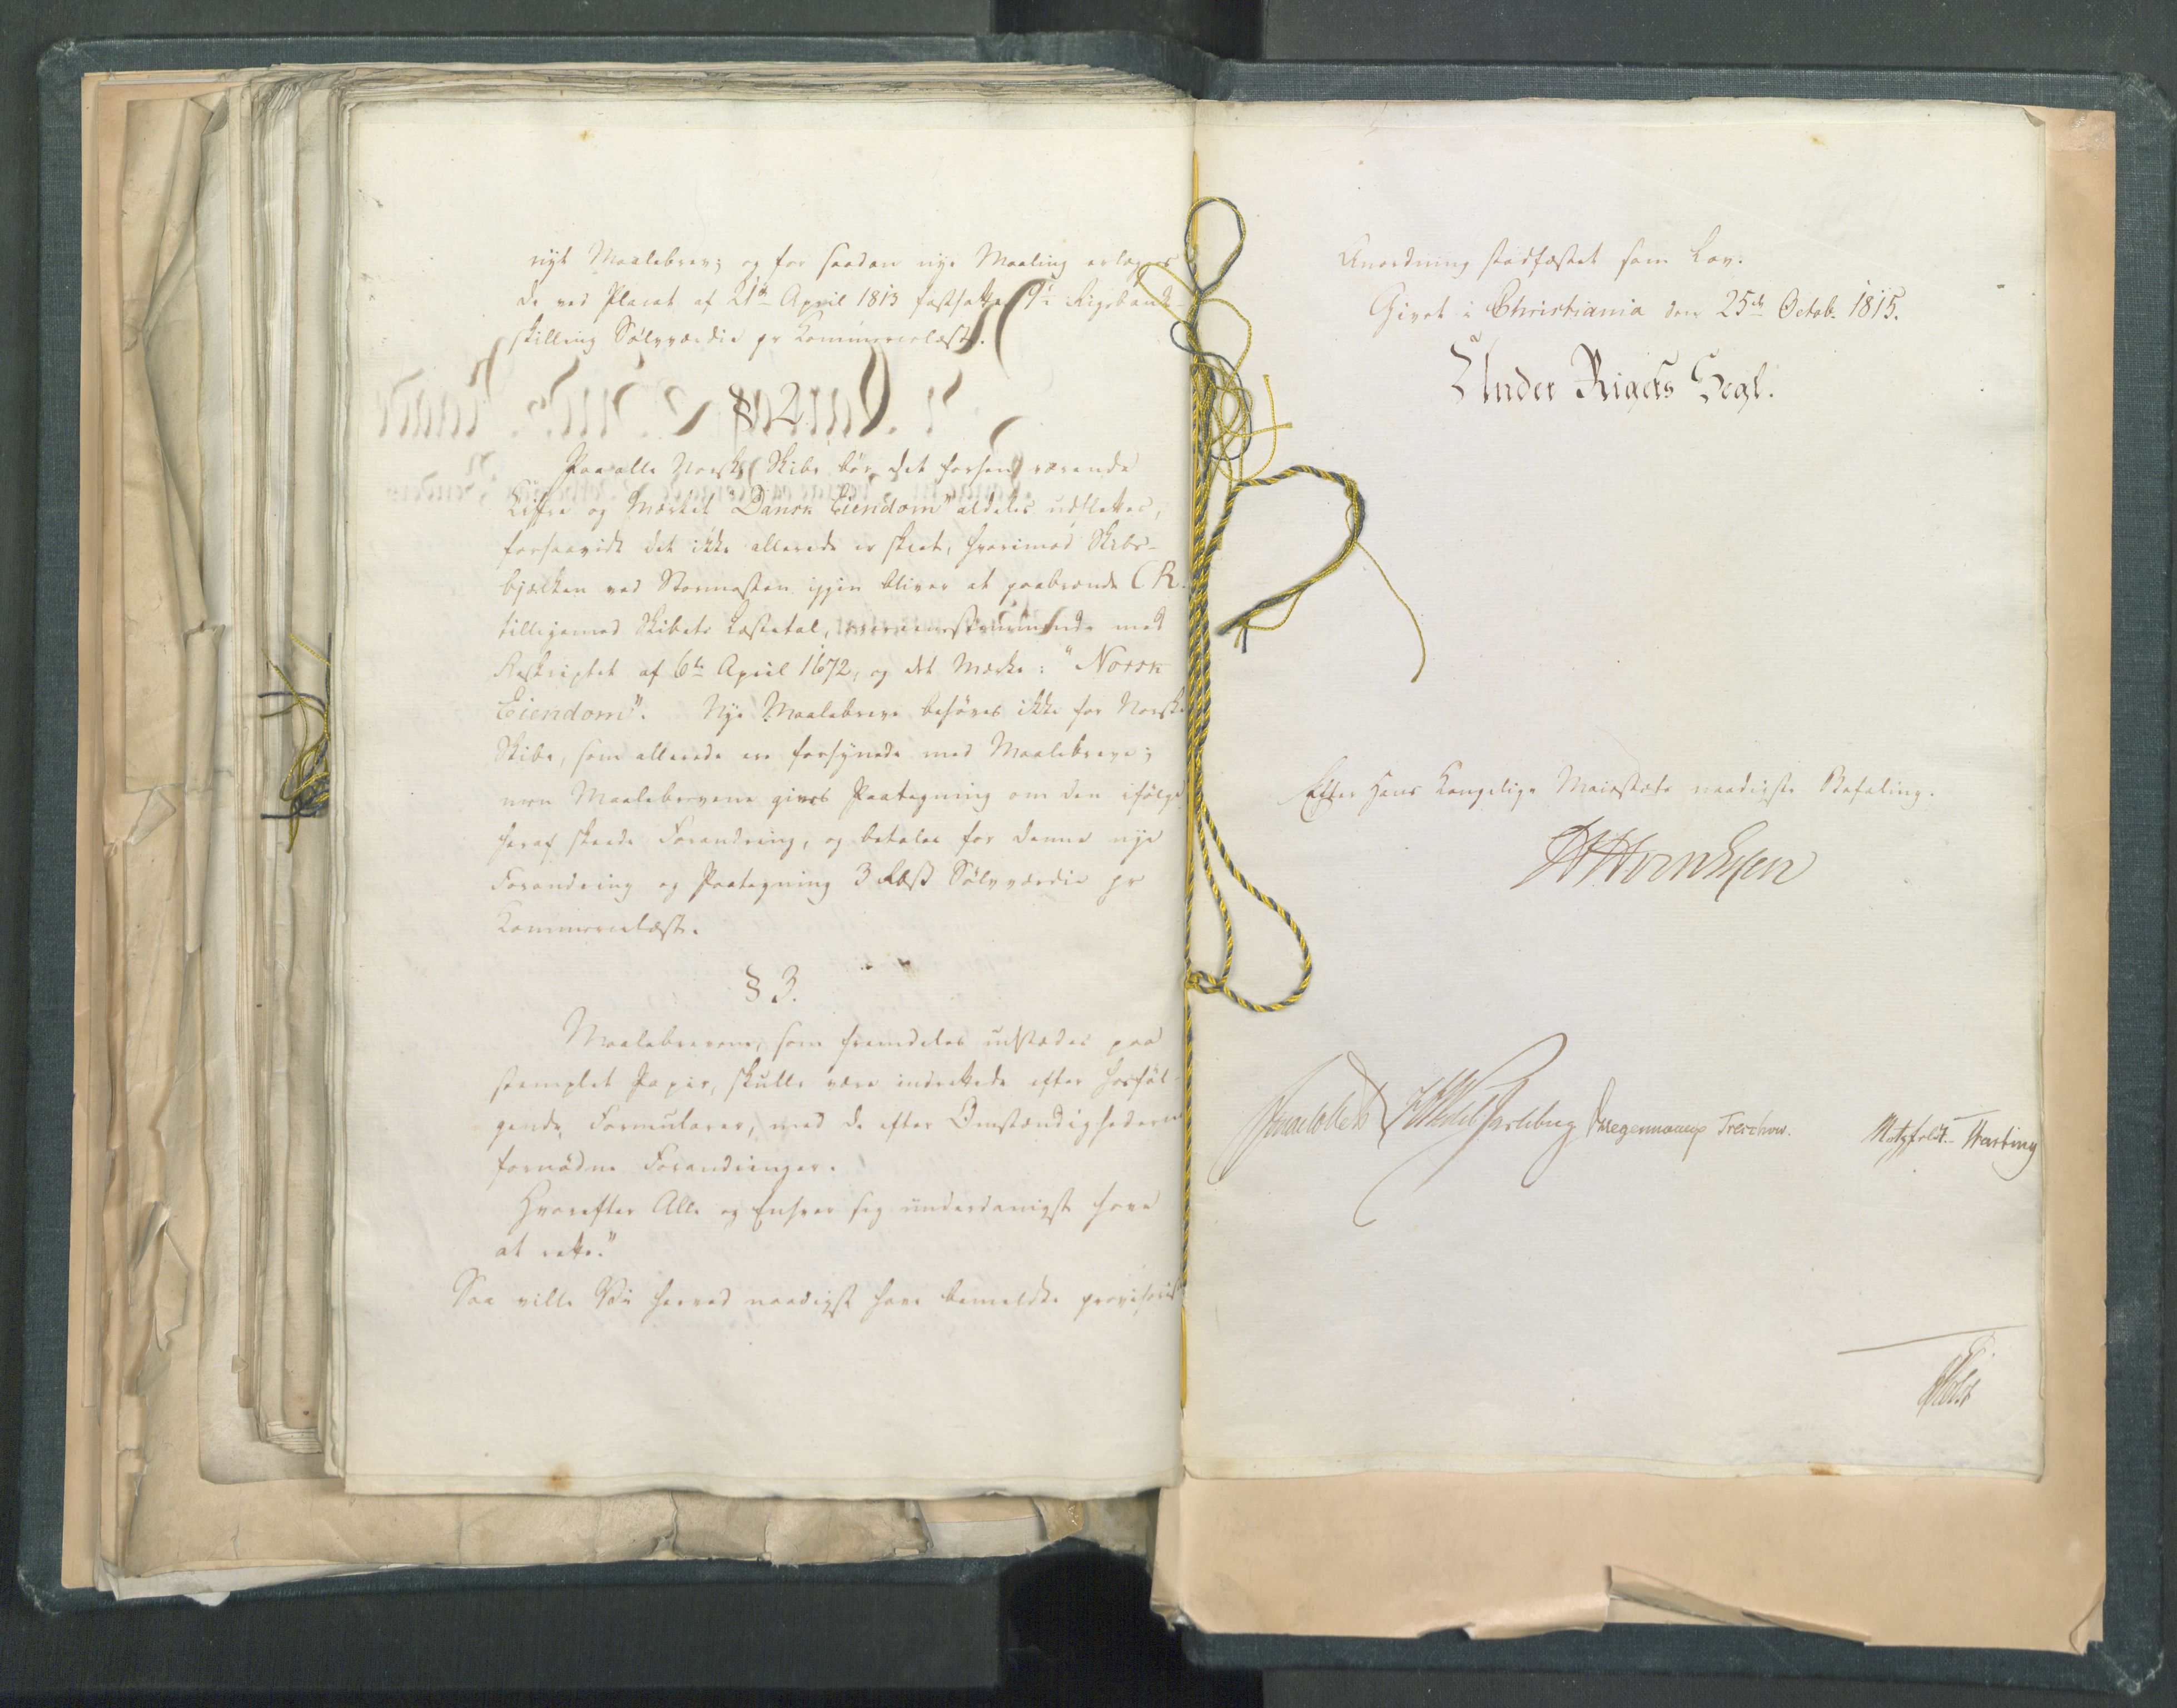 nyt Maalebrev; og for saadan nye Maaling erlægges
de ved Placat af 21de April 1813 fastsatte Rigsbank-
skilling Sølvværdie pr Kommercelæst.
§ 2.
Paa alle Norske Skibe bør det forhen værende
Ziffre og Mærket "Dansk Eiendom" aldeles udslettes,
forsaavidt det ikke allerede er skeet, hvorimod Skibs-
bjælken ved Stormasten igjen bliver at paabrænde C R.
tilligemed Skibets Læstetal, overeensstemmende med
Reskriptet af 6te April 1672, og det Mærke: "Norsk
Eiendom". Nye Maalebreve behøves ikke for Norske
Skibe, som allerede ere forsynede med Maalebreve;
men Maalebrevene gives Paategning om den ifølge
heraf skeede Forandring, og betales for denne nye
Forandring og Paategning 3 Rbß Sølvværdie pr
Kommercelæst.
§ 3.
Maalebrevene, som fremdeles udstædes paa
stemplet Papir, skulle være indrettede efter hosføl-
gende Formularer, med de efter Omstændighederne
fornødne Forandringer.
Hvorefter Alle og Enhver sig underdanigst have
at rette."
Saa ville Vi herved naadigst have bemeldte provisoriske
Anordning stadfæstet som Lov.
Givet i Christiania den 25de Octob. 1815.
Under Rigets Segl.
Efter Hans Kongelige Majestæts naadigste Befaling.
Sommerhielm Wedel Jarlsberg Diegermann Treschow. Motzfeldt. Hasting
Holst